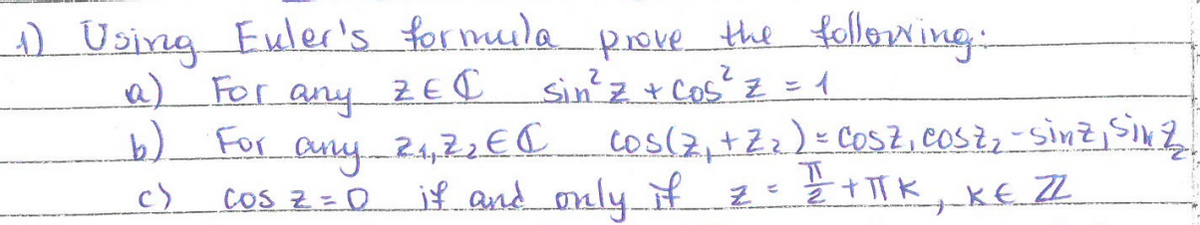 1) Using Euler's formula prove the following:
a) For any z ∈ ℂ sin² z + cos² z = 1
b) For any z₁, z₂ ∈ ℂ cos(z₁ + z₂) = cos z₁ cos z₂ - sin z₁ sin z₂
c) cos z = 0 if and only if z = π/2 + πk, k ∈ ℤ